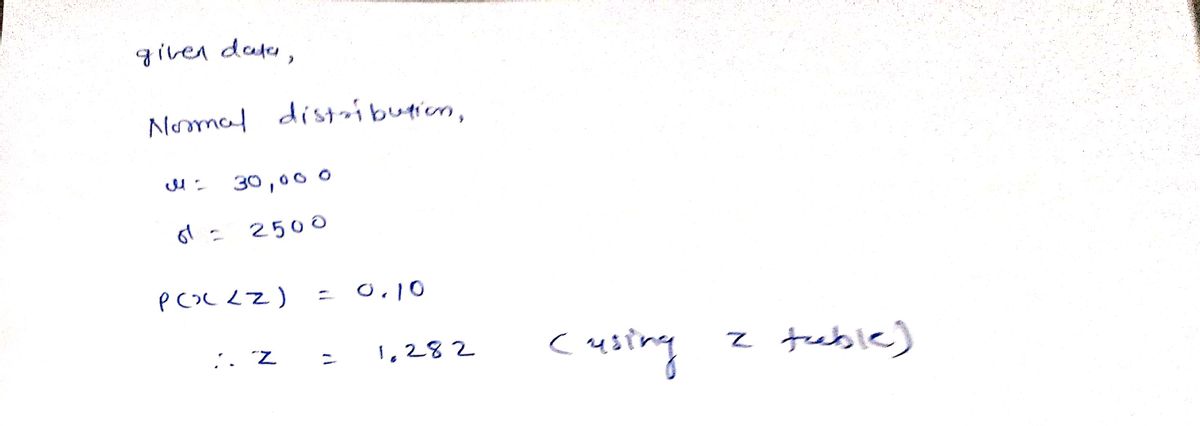 given data,
Normal distribution,
μ = 30,000
σ = 2500
P(x < z) = 0.10
∴ z = 1.282 (using z table)